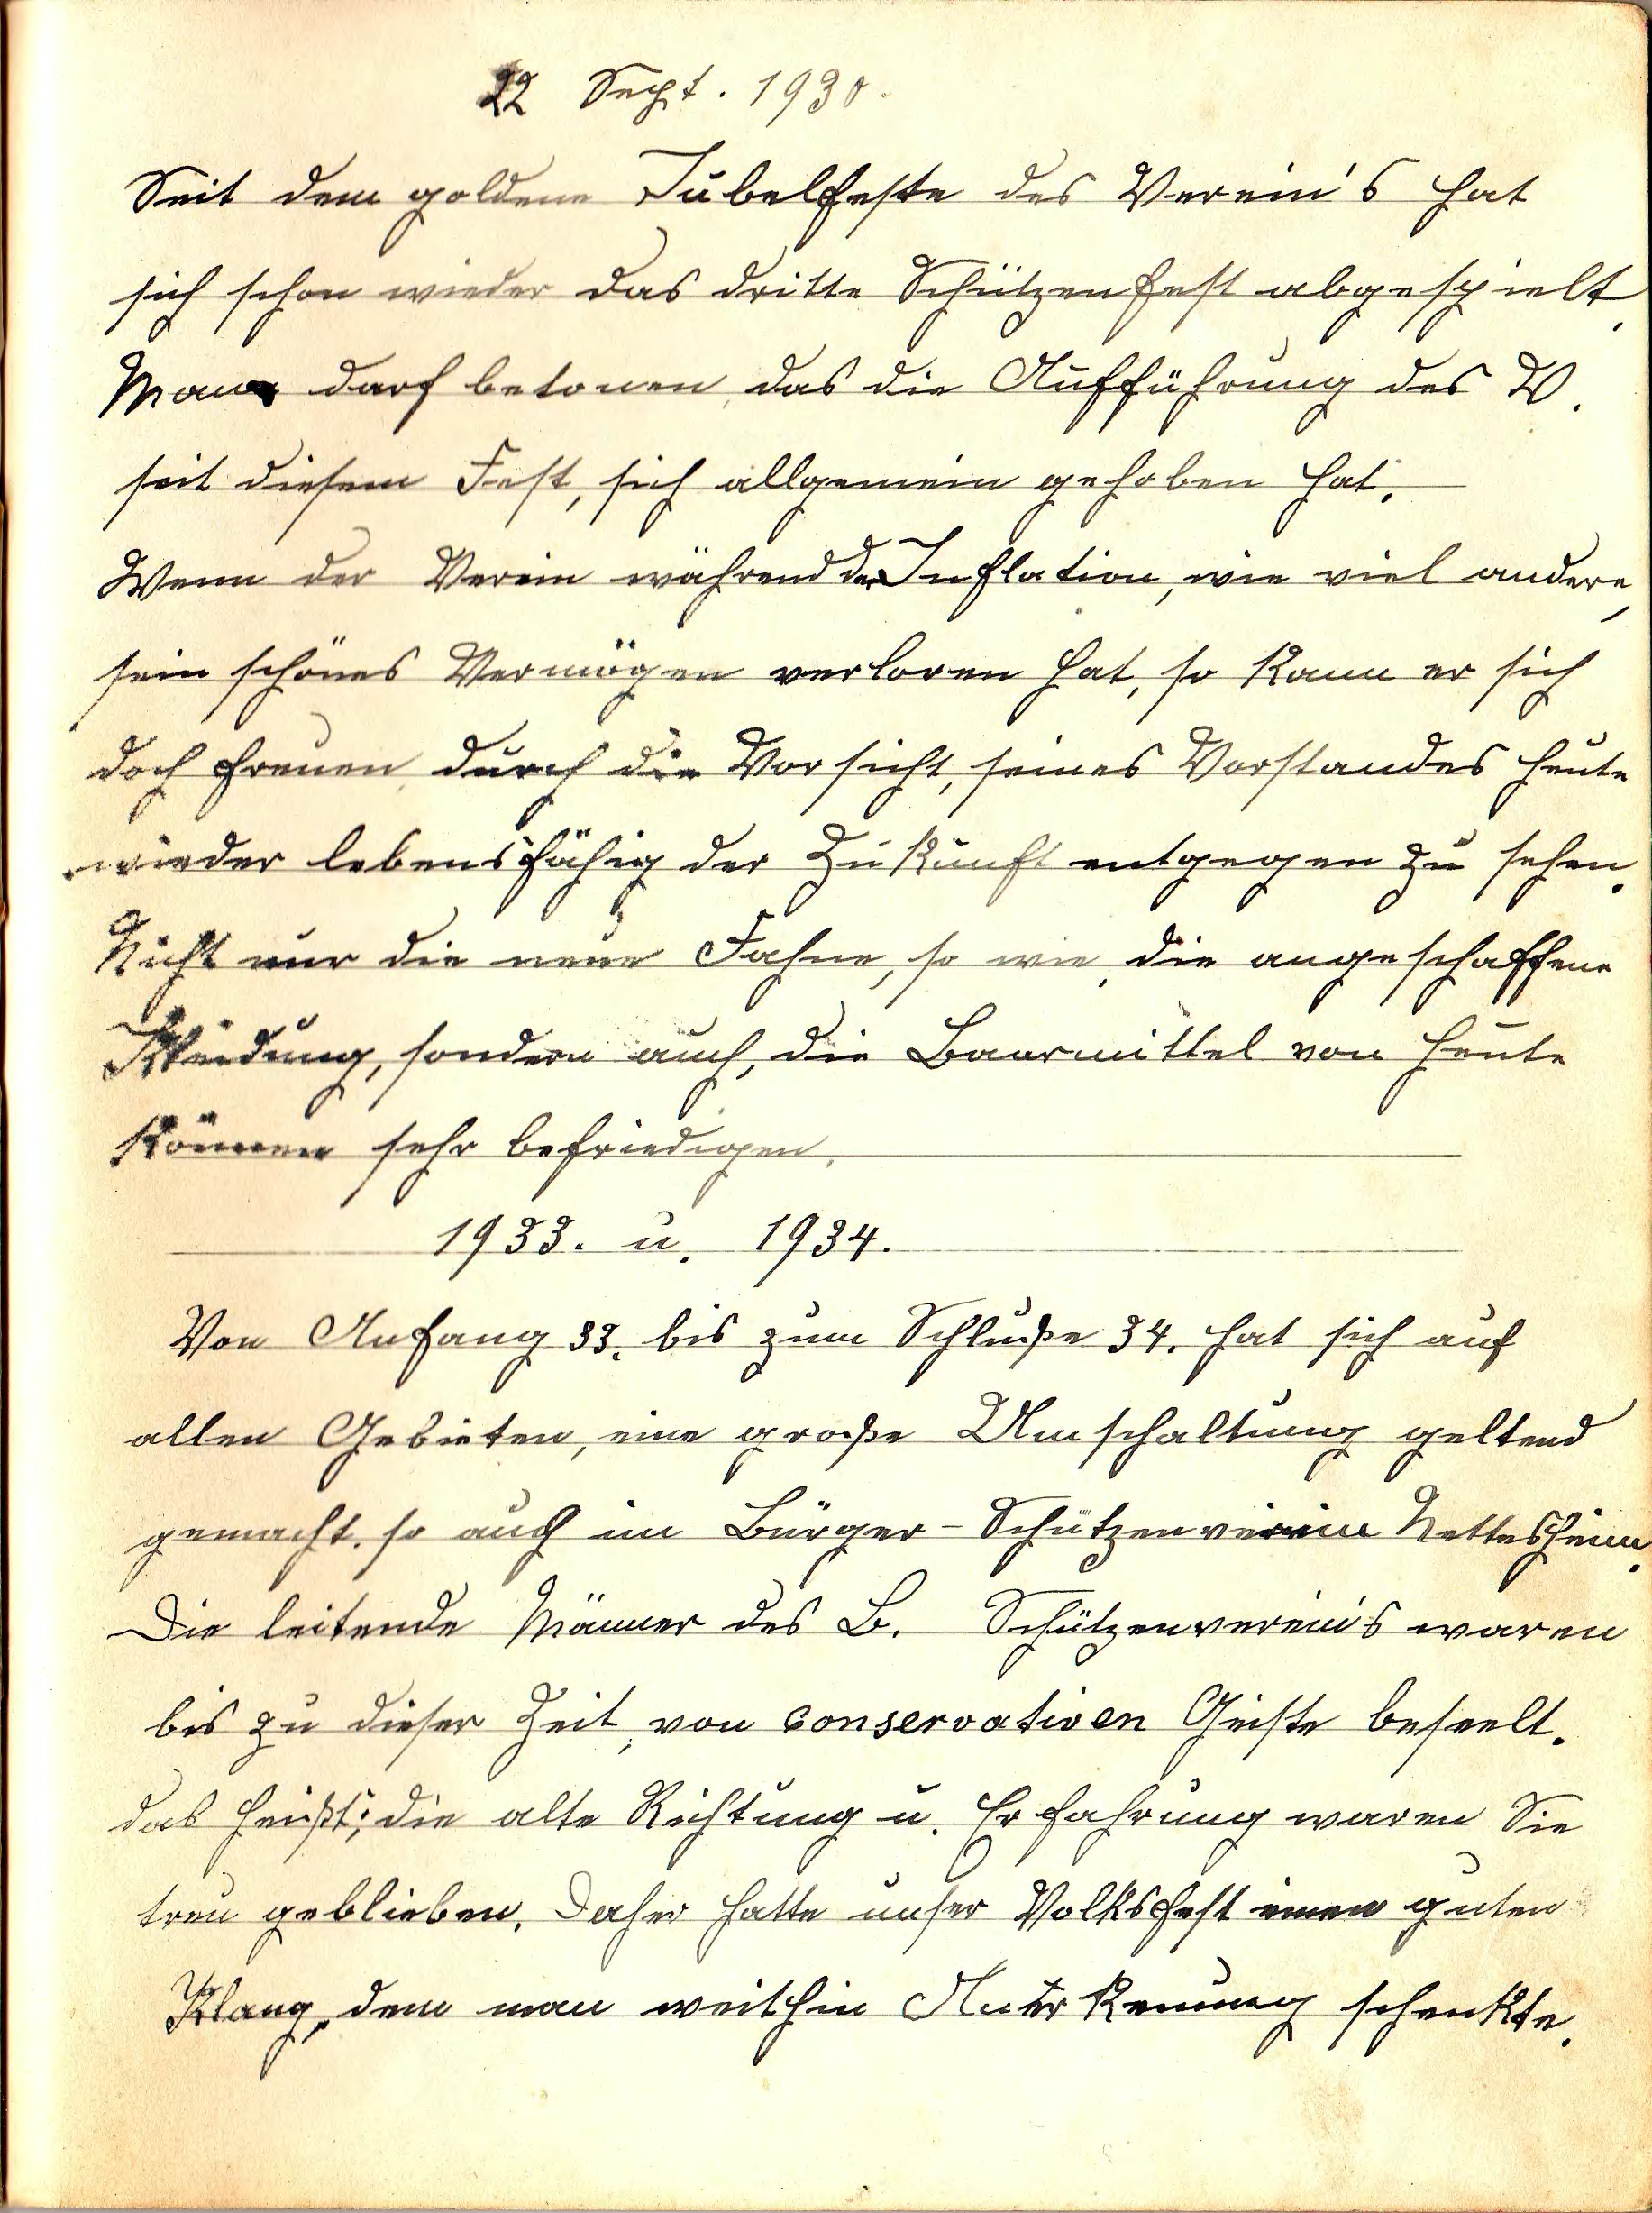 22 Sept. 1930.
Seit dem goldene Jubelfeste des Verein's hat
sich schon wieder das dritte Schützenfest abgespielt.
Mann darf betonen, das die Aufführung des V.
seit diesem Fest, sich allgemein gehoben hat.
Wenn der Verein während der Inflation, wie viel andere,
sein schönes Vermögen verloren hat, so kann er sich
doch freuen, durch die Vorsicht, seines Vorstandes heute
wieder lebensfähig der Zukunft entgegen zu sehen.
Nicht nur die neue Fahne, so wie, die angeschaffene
Kleidung, sondern auch, die Baarmittel von heute
können sehr befriedigen.
1933. u. 1934.
Von Anfang 33. bis zum Schluße 34. hat sich auf
allen Gebieten, eine große Umschaltung geltend
gemacht. so auch im Bürger-Schützenverein Nettesheim.
Die leitende Männer des B. Schützenverein's waren
bis zu dieser Zeit, von conservativen Geiste beseelt.
das heißt; die alte Richtung u. Erfahrung waren Sie
treu geblieben. Daher hatte unser Volksfest einen guten
Klang, dem man weithin Anerkennung schenkte.